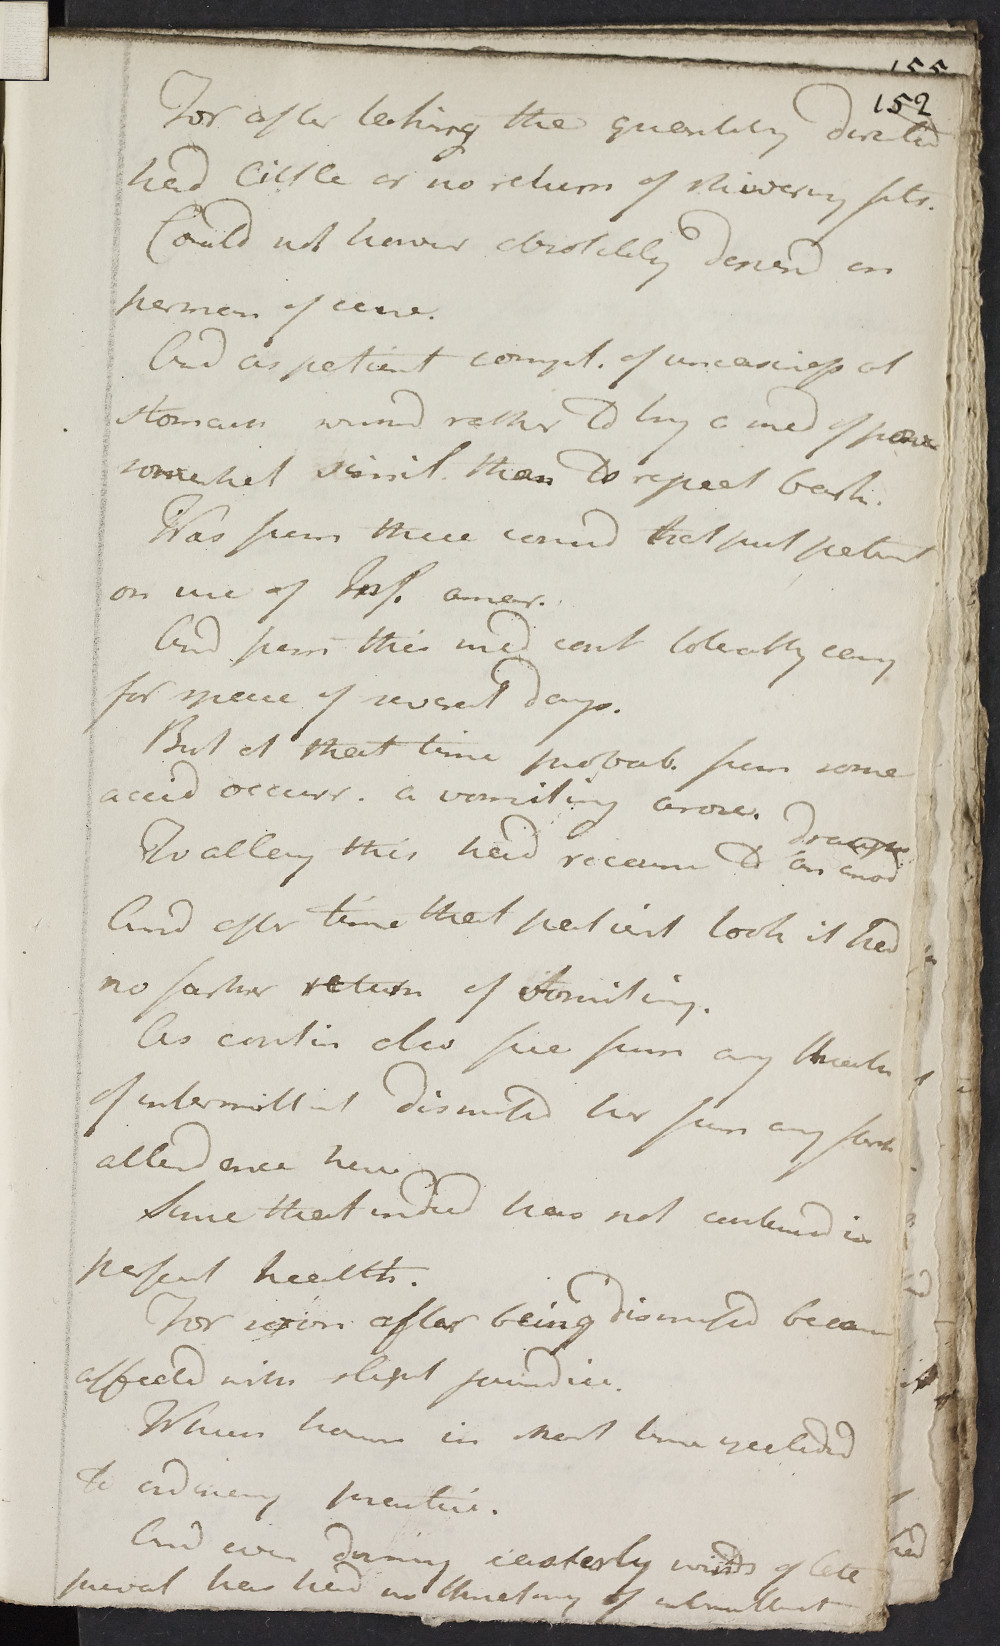 155
152
For after taking the quantity directed
had little or no return of shivering fits.
Could not however absolutely depend on
perman of cure.
And as patient compl. of uneasiness at
stomach wished rather to try a med of power
somewhat simil. than to repeat bark.
Was from these consid that put patient
on use of Inf. amar.
And from this med cont tolerably easy
for space of several days.
But at that time probab. from some
accid occurr. a vomiting arose.
draught
To allay this had recourse to an anod
And after time that patient took it had
no farther return of vomiting.
As contin also free from any threaten
of intermittent dismissed her from any farth
attendance here
Since that indeed has not continued in
perfect health.
For soon after being dismissed became
affected with slight jaundice.
Which however in short time yielded
to ordinary practice.
And even during easterly winds of late
preval has had no threatning of intermittent